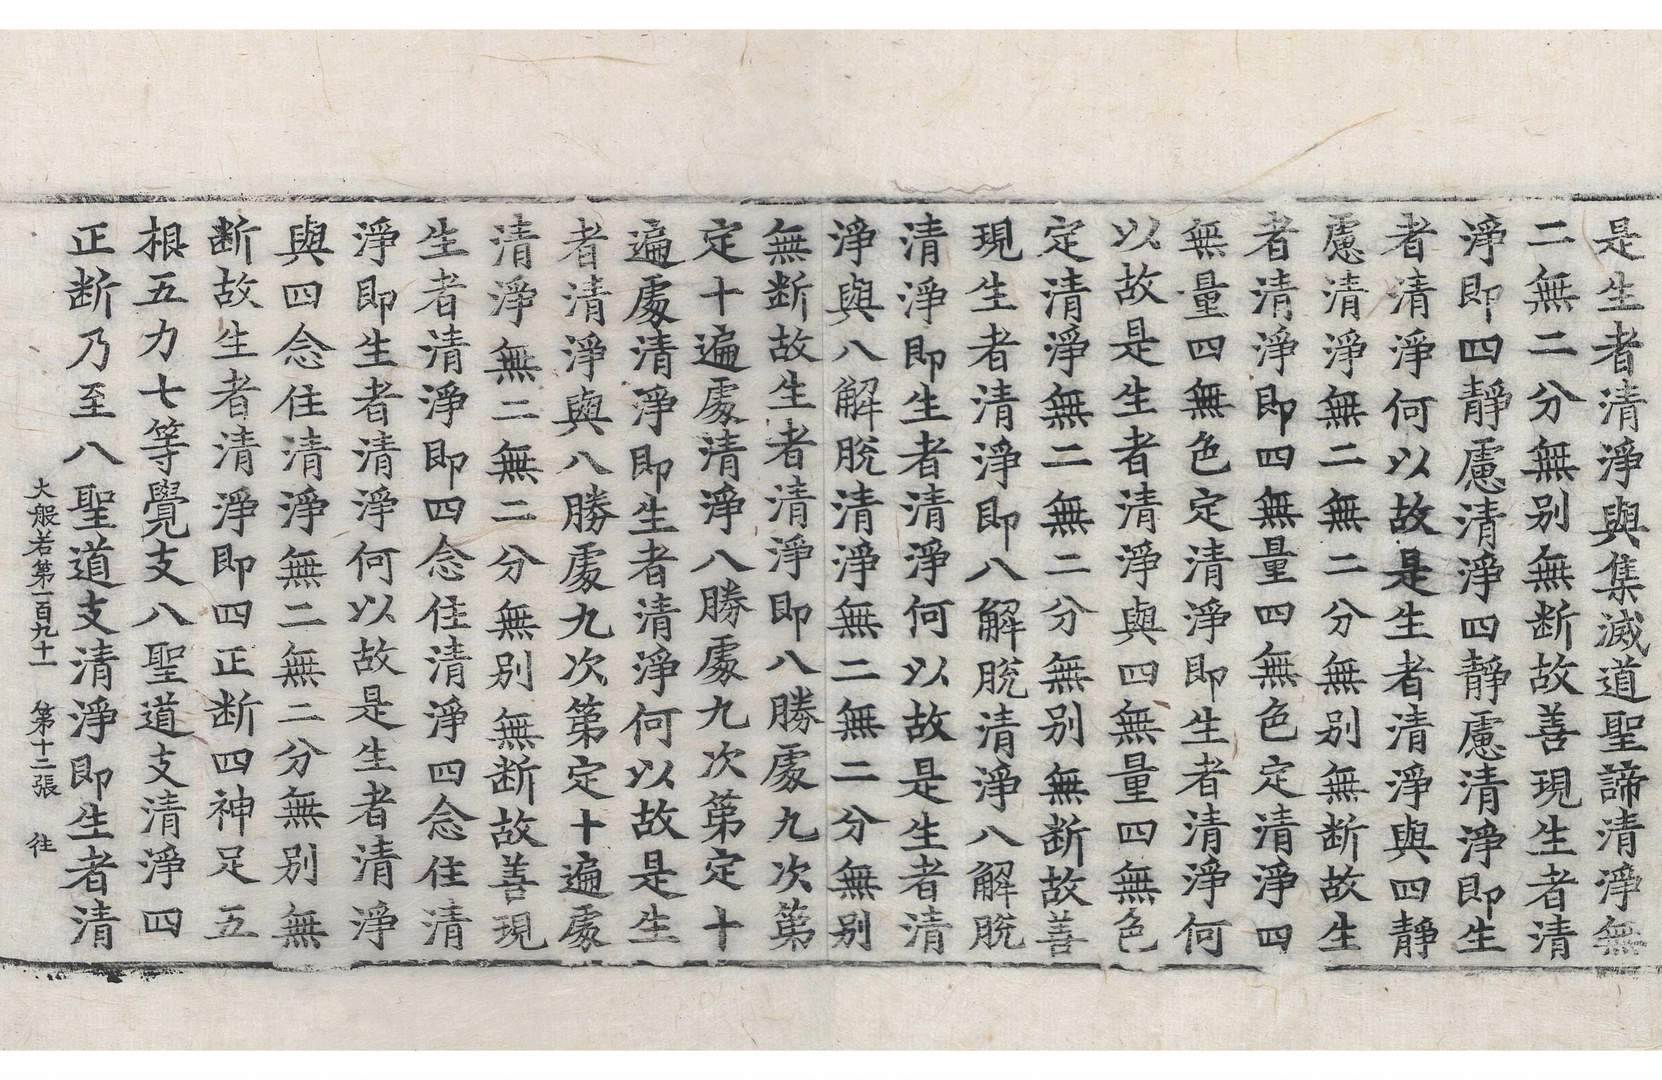 是生者清淨與集滅道聖諦清淨無
二無二分無别無断故善現生者清
淨即四靜慮清淨四靜慮清淨即生
者清淨何以故是生者清淨與四靜
慮清淨無二無二分無别無断故生
者清淨即四無量四無色定清淨四
無量四無色定清淨即生者清淨何
以故是生者清淨與四無量四無色
定清淨無二無二分無别無断故善
現生者清淨即八解脫清淨八解脫
清淨即生者清淨何以故是生者清
淨與八解脫清淨無二無二分無别
無断故生者清淨即八勝處九次第
定十遍處清淨八勝處九次第定十
遍處清淨即生者清淨何以故是生
者清淨與八勝處九次第定十遍處
清淨無二無二分無别無断故善現
生者清淨即四念住清淨四念住清
淨即生者清淨何以故是生者清淨
與四念住清淨無二無二分無别無
断故生者清淨即四正断四神足五
根五力七等覺支八聖道支清淨四
正断乃至八聖道支清淨即生者清
大般若第一百九十一 第十二張 往